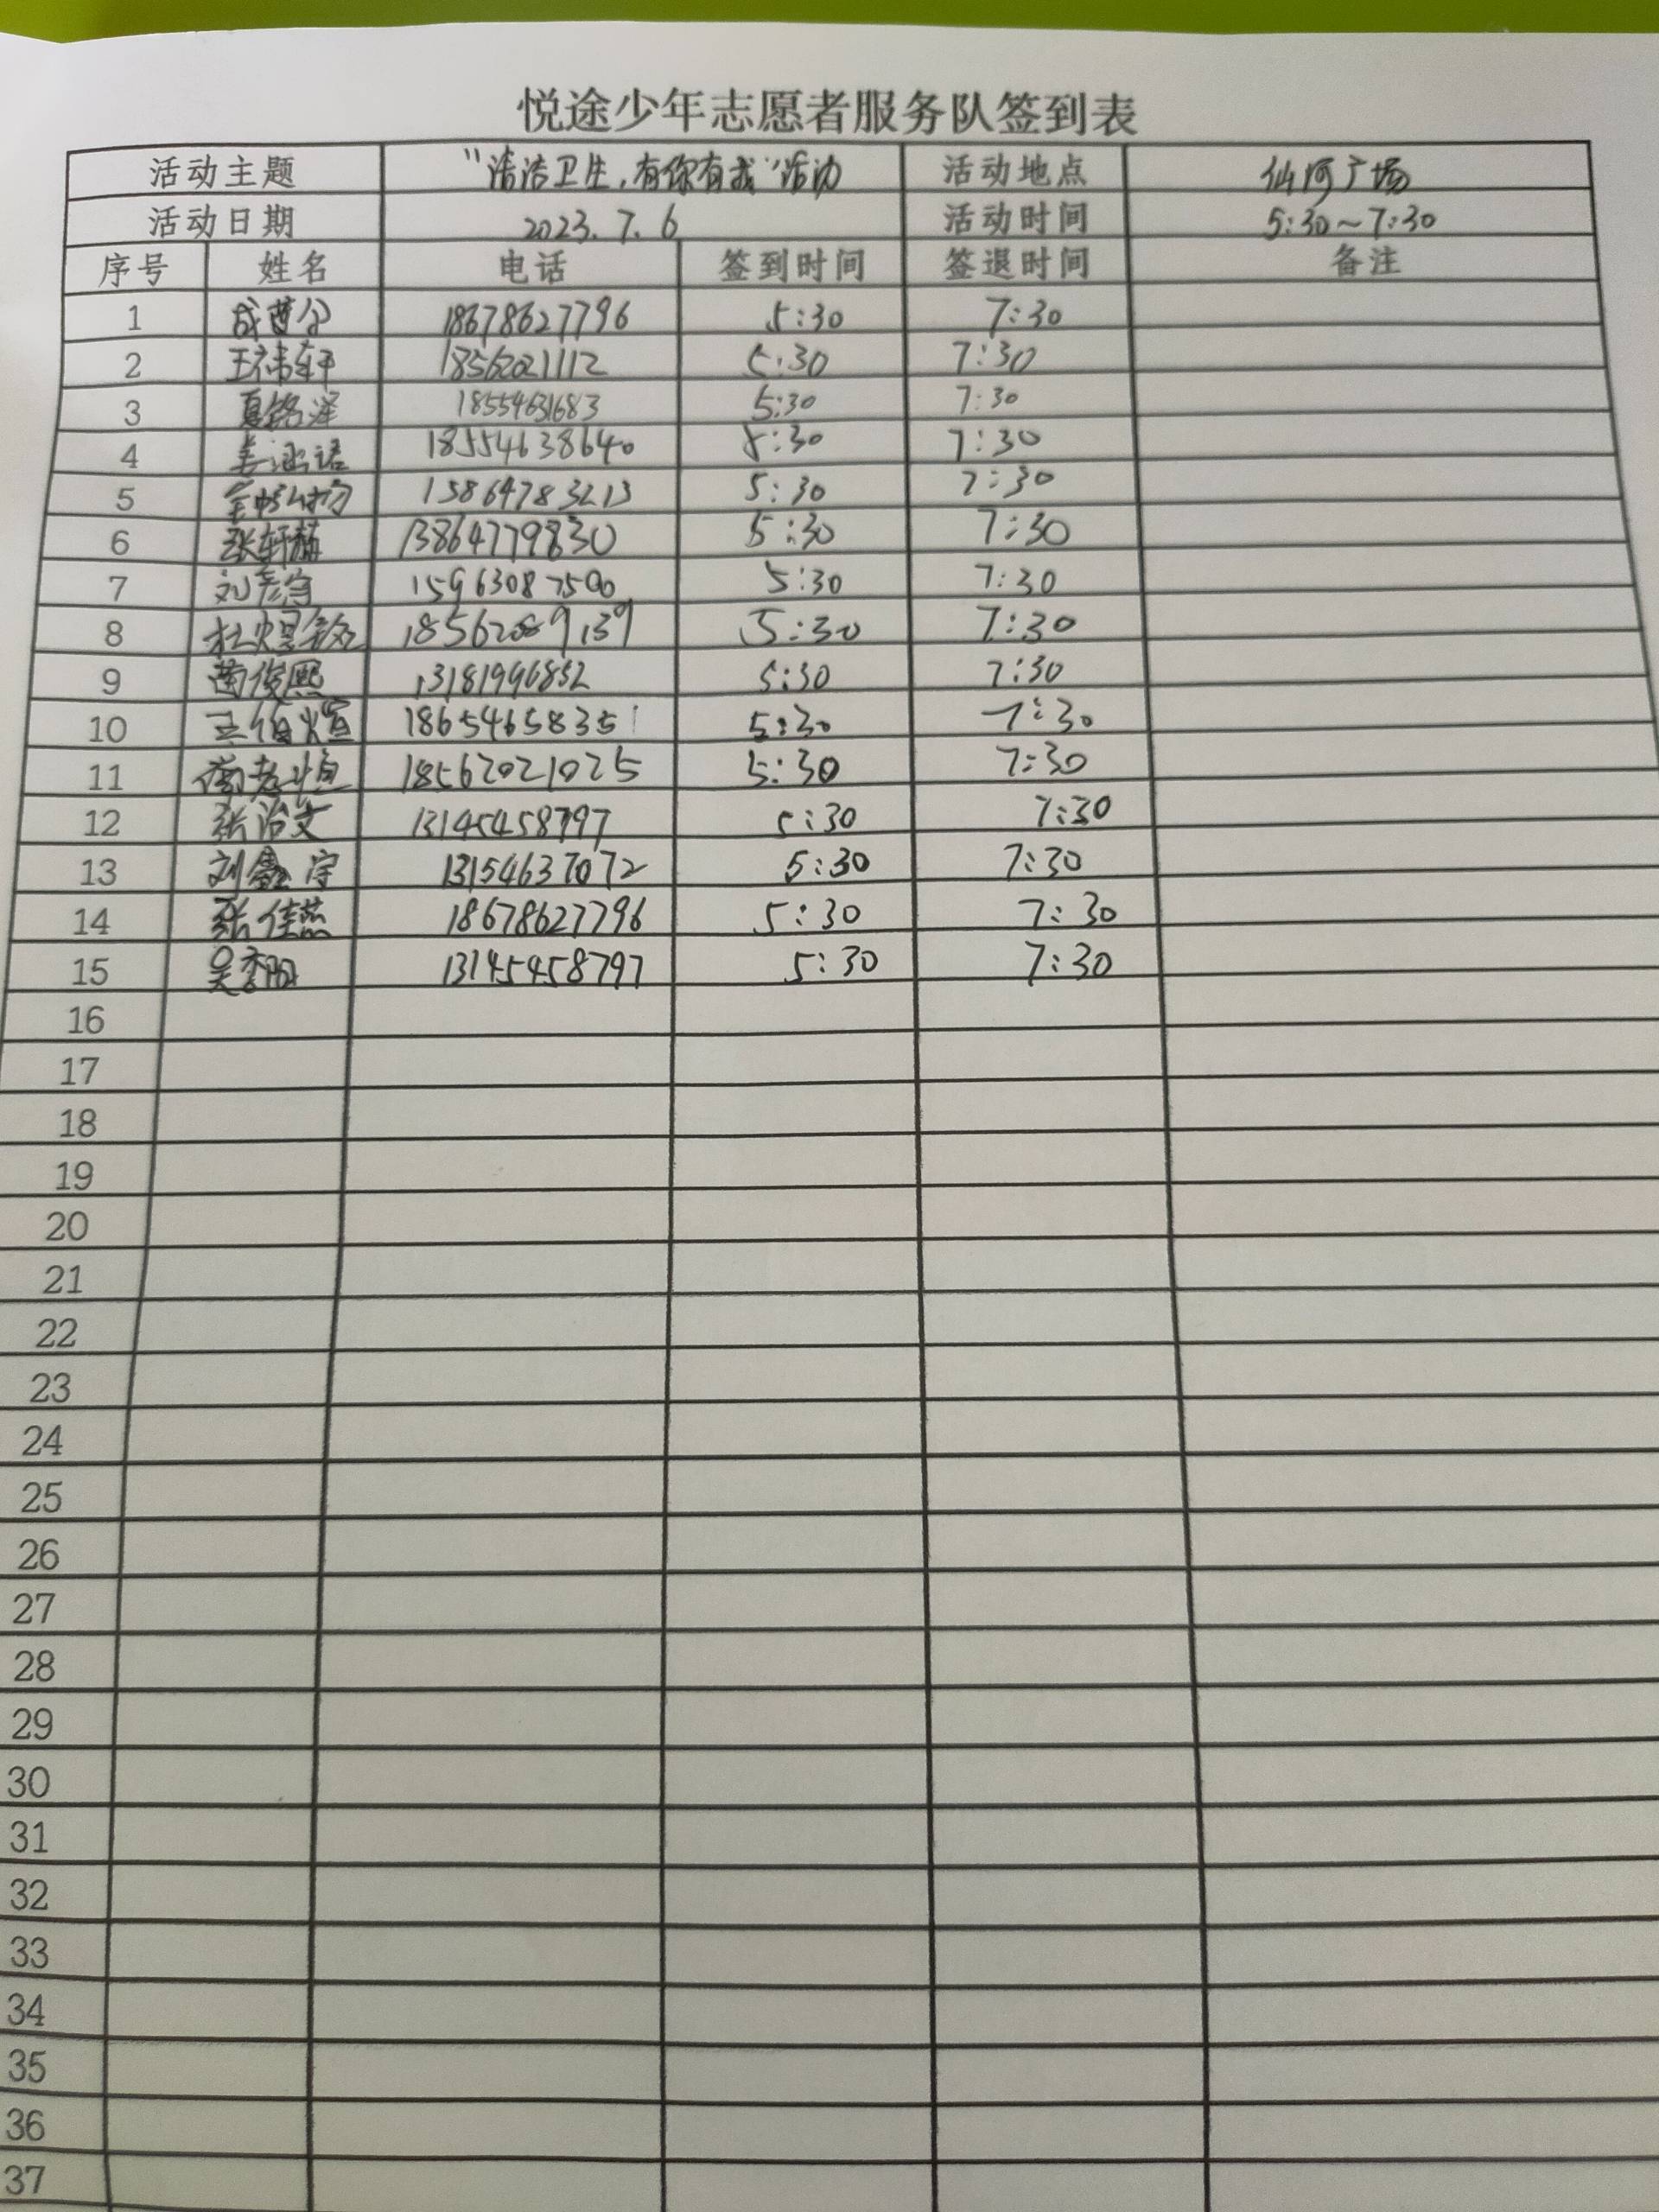 悦途少年志愿者服务队签到表
活动主题 "清洁卫生,有你有我"活动 活动地点 仙河广场
活动日期 2023.7.6 活动时间 5:30~7:30
序号 姓名 电话 签到时间 签退时间 备注
1 18678627796 5:30 7:30
2 王祎轩 18562021112 5:30 7:30
3 夏铭泽 18554631683 5:30 7:30
4 姜涵语 18554638640 5:30 7:30
5 15864783213 5:30 7:30
6 13864779830 5:30 7:30
7 刘彦宇 15963087500 5:30 7:30
8 5:30 7:30
9 13181996852 5:30 7:30
10 18654658351 5:30 7:30
11 18562021025 5:30 7:30
12 张治文 13145458797 5:30 7:30
13 刘鑫宇 13154637072 5:30 7:30
14 张佳蕊 18678627796 5:30 7:30
15 吴季阳 13145458797 5:30 7:30
16
17
18
19
20
21
22
23
24
25
26
27
28
29
30
31
32
33
34
35
36
37